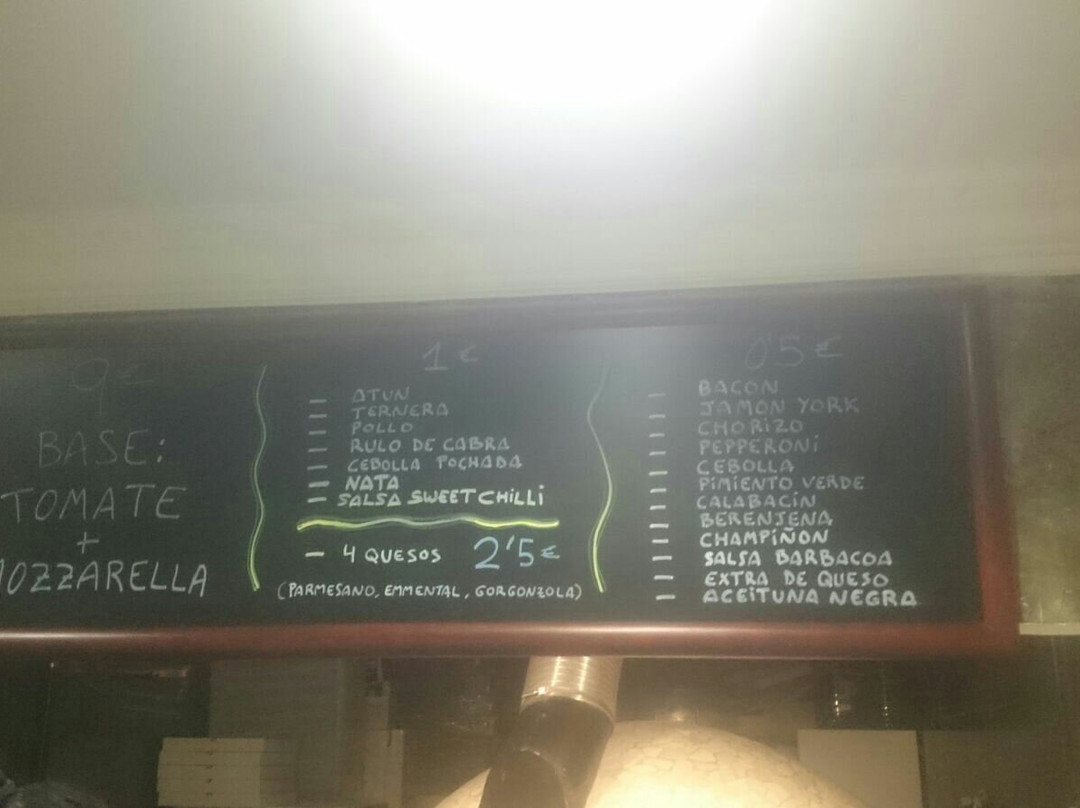 9 €
BASE:
TOMATE
+
MOZZARELLA
1 €
- ATUN
- TERNERA
- POLLO
- RULO DE CABRA
- CEBOLLA POCHADA
- NATA
- SALSA SWEET CHILLI
- 4 QUESOS 2'5 €
(PARMESANO, EMMENTAL, GORGONZOLA)
0'5 €
- BACON
- JAMON YORK
- CHORIZO
- PEPPERONI
- CEBOLLA
- PIMIENTO VERDE
- CALABACÍN
- BERENJENA
- CHAMPIÑON
- SALSA BARBACOA
- EXTRA DE QUESO
- ACEITUNA NEGRA